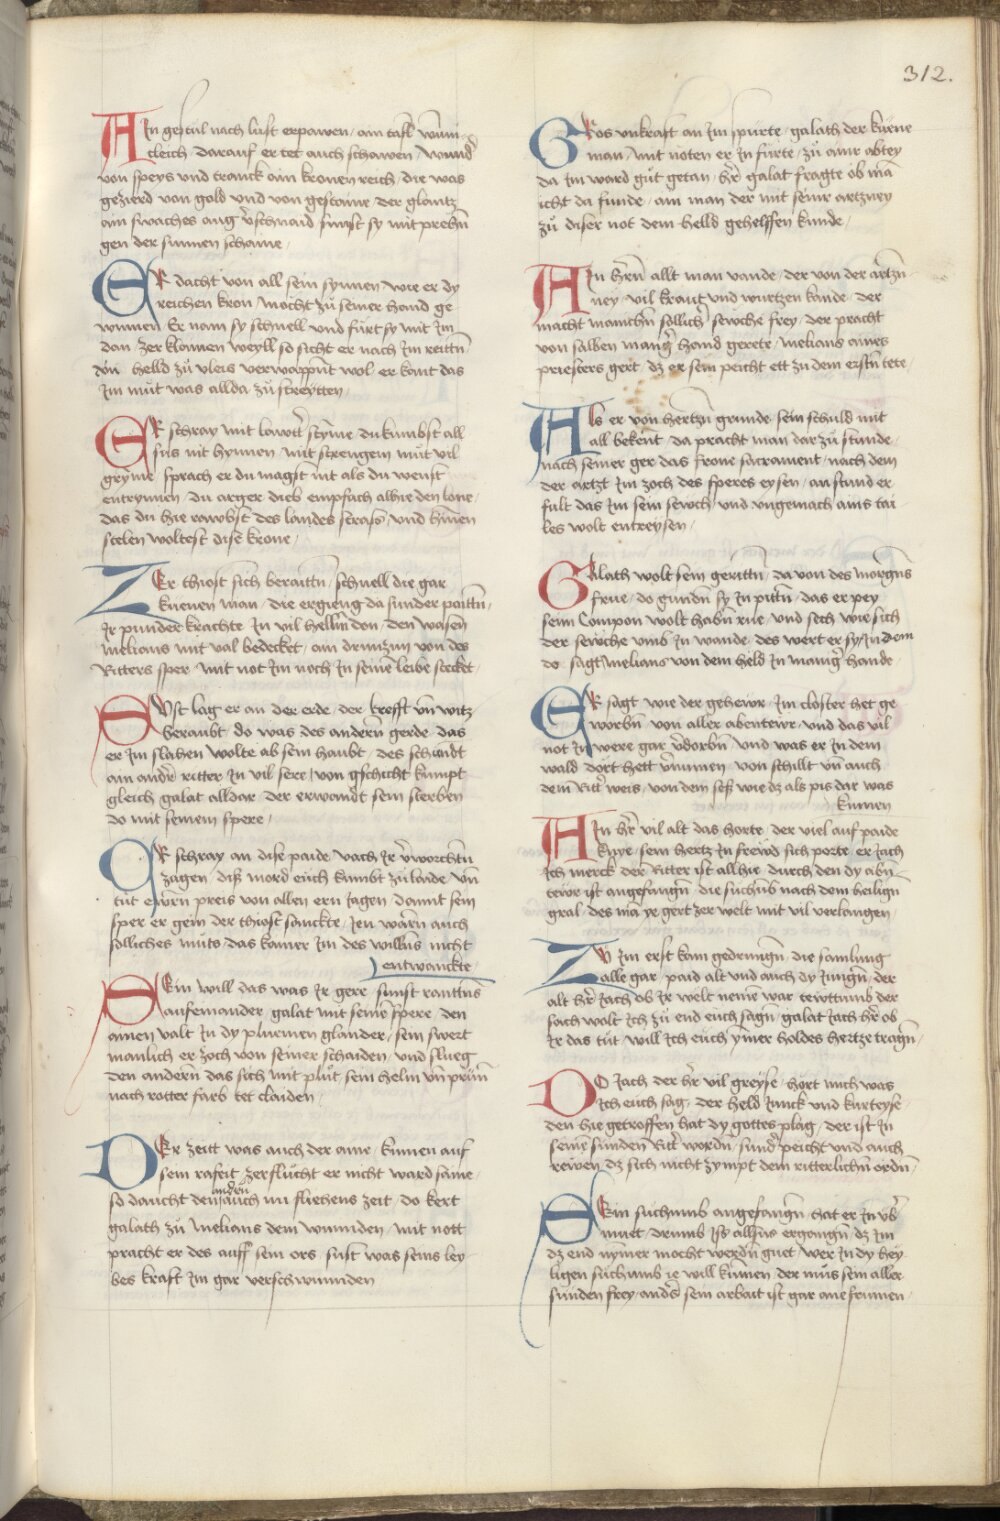 312.
AIn gestul nach lust erpawen / am tafl wunn
cleich / darauf er tet auch schawen / wund
von speys vnd tranck ain kronen reich / die was
gezierd von gold vnd von gestaine der glantz
ain swaches aug v̄schnaid sunst sy mit prehn̄
gen der sunnen schame /
ER dacht von all sein synnen wie er dy
reichen kron / mocht zů seiner hand ge
wynnen Er nam sy schnell vnd fůrt sy mit Im
dan zer klainen weyll so sicht er nach Im reittn̄
helld zů vleis verwappn̄t wol er kant das
Im můt was allda zů streytten /
ER schray mit lawtt̄ stÿme du kumbst all
sus nit hynnen / mit strengem můt vil
gryme / sprach er du magst nit als du wenst
entrynnen / du arger dieb empfach alhie den lone /
das du hie rawbst des landes strass / vnd hinen
stelen woltest dise krone /
ZEr thiost sich beraittn̄ / schnell die gar
kůenen man / die ergieng da sunder paittn̄ /
Ir punder krachte In vil hellm̄ don / den wasen
melians mit val bedecket / ain drunzun von des
Ritters sper / mit not Im noch In seine leibe stecket /
SVst lag er an der erde / der krefft vn̄ witz
beraubt / do was des andern gerde / das
er Im slahen wolte ab sein haubt / des schandt
ain andr̄ ritter In vil sere / von gschicht kumpt
gleich galat alldar / der erwandt sein sterben
do mit seinem spere /
ER schray an dise paide / vach Ir v̄worchtn̄
zagen / diss mord euch kumbt zů laide vn̄
tůt ewrn preis von allen ern Iagen / damit sein
sper er gein der thiost sanckte / Ien warn auch
solliches můts / das kainer Im des willns nicht
entwanckte
SEin will das was Ir gere / sunst rantuns
aufeinander / galat mit seinē spere / den
ainen valt In dy plůemen glander / sein swert
manlich er zoch von seiner schaiden / vnd slueg
den andern das sich mit plůt sein helm vn̄ prun̄
nach rotter farb tet claiden /
DEr zeitt was auch der aine / kumen auf
sein rafeit / zerflůcht er nicht ward saine /
andern
so daucht den / auch nu fliehens zeit / do kert
galath zů melians dem wunnden / mit nott
pracht er des auff sein ors / sust was seins ley
bes kraft Im gar verschwunnden
GRos vnkraft an Im spůrte / galath der kůene
man / mit nöten er In fůrte / zů ainr abtey
da Im ward gůt getan / hr̄ galat fragte ob mā
icht da funde / ain man der mit seinr artzney
zů diser not dem helld gehelffen kunde /
AIn hr̄n allt man vande / der von der artzn̄
ney / vil kraut vnd wurtzen kande / der
macht manichn̄ sollich̄ sewche frey / der pracht
von salben manḡ hand gerete / melians aines
priesters gert / dz er sein peicht ett zu dem erstn̄ tete /
ALs er von hertzn̄ grunde / sein schuld mit
all bekent / da pracht man dar zů stunde /
nach seiner ger das frone sacrament / nach dem
der artzt Im zoch des speres eysen / an stund er
fult das Im sein sewch / vnd vngemach ains tai
les wolt entreysen /
GAlath wolt sein gerittn̄ / da von des morgn̄s
frue / do gundn̄ sy In pittn̄ / das er pey
seim Compon wolt habn̄ rue / vnd sech wie sich
der sewche vmb In wande / des wert er sy / In dem
do sagt melians von dem held In maniḡ hande /
ER sagt wie der gehewr / Im closter het ge
worbn̄ von aller abentewr / vnd das vil
not In were gar v̄dorbn̄ / vnd was er In dem
wald dort hett v̄numen / von schillt vn̄ auch
dem Ritt̄ weis / von dem schf wie dz als pis dar was
kumen
AIn hr̄ vil alt das horte / der viel auf paide
knye / sein hertz In frewd sich porte / er Iach
Ich merck der Ritter ist allhie / durch den dy abn̄
tewr ist angefangn̄ / die suchnb nach dem heilign̄
gral / des mā ye gert zer welt mit vil verlangen /
ZV Im erst kam gedrungn̄ / die samlung
alle gar / paid alt vnd auch dy Iungn̄ / der
alt hr̄ Iach ob Ir welt nemē war / tewttumb der
sach walt Ich zů end euch sagn̄ / galat Iach hr̄ ob
Ir das tůt / will Ich euch ÿmer holdes hertze tragn̄ /
DO Iach der hr̄ vil greyse / hört mich was
Ich euch sag / der held Iunck vnd kurteyse /
den hie getroffen hat dy gottes plag / der ist In
seine sůnden Ritt̄ wordn̄ / sund̄ peicht vnd auch
rewen / dz sich nicht zympt dem ritterlichn̄ ordn̄ /
SEin suchumb angefangn̄ / hat er In vb̄
muet / drumb Ists allsus ergangn̄ / dz Im
dz end nymer mocht werdn̄ guet / wer In dy hey
ligen suchumb ie will kumen / der mus sein aller
sunden frey / and̄s sein arbait ist gar ane frumen /